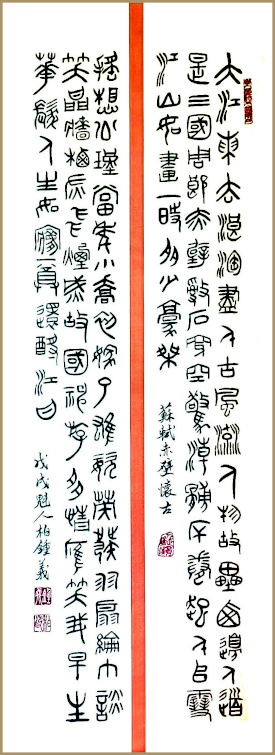 大江東去浪淘盡千古風流人物故壘西邊人道
是三國周郎赤壁亂石穿空驚濤拍岸捲起千堆雪
江山如畫一時多少豪傑
蘇軾赤壁懷古
遙想公瑾當年小喬初嫁了雄姿英發羽扇綸巾談
笑間檣櫓灰飛煙滅故國神遊多情應笑我早生
華髮人生如夢一尊還酹江月
戊戌魁人柏鍾義